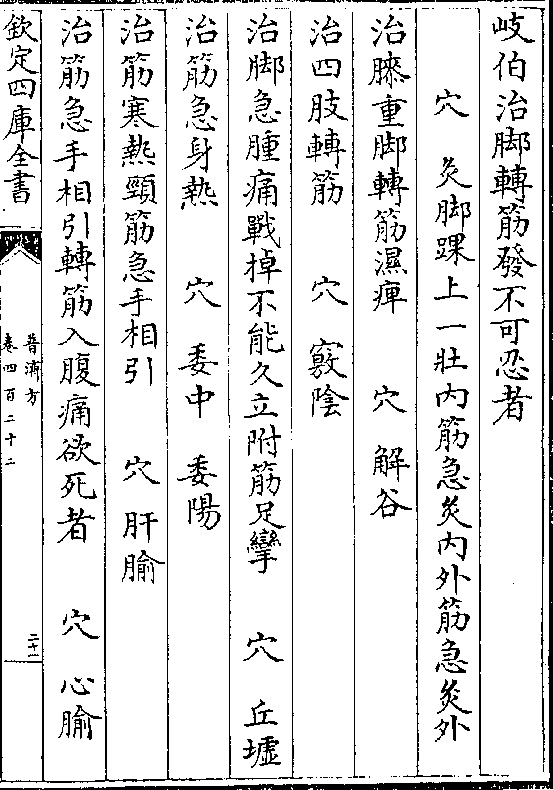 岐伯治脚轉筋發不可忍者
穴 灸脚踝上一壯内筋急灸内外筋急灸外
治膝重脚轉筋濕痺 穴 解谷
治四肢轉筋 穴 竅陰
治脚急腫痛戰掉不能久立附筋足攣 穴 丘墟
治筋急身熱 穴 委中 委陽
治筋寒熱頸筋急手相引 穴 肝腧
治筋急手相引轉筋入腹痛欲死者 穴 心腧
欽定四庫全書
普濟方
卷四百二十二
二十一